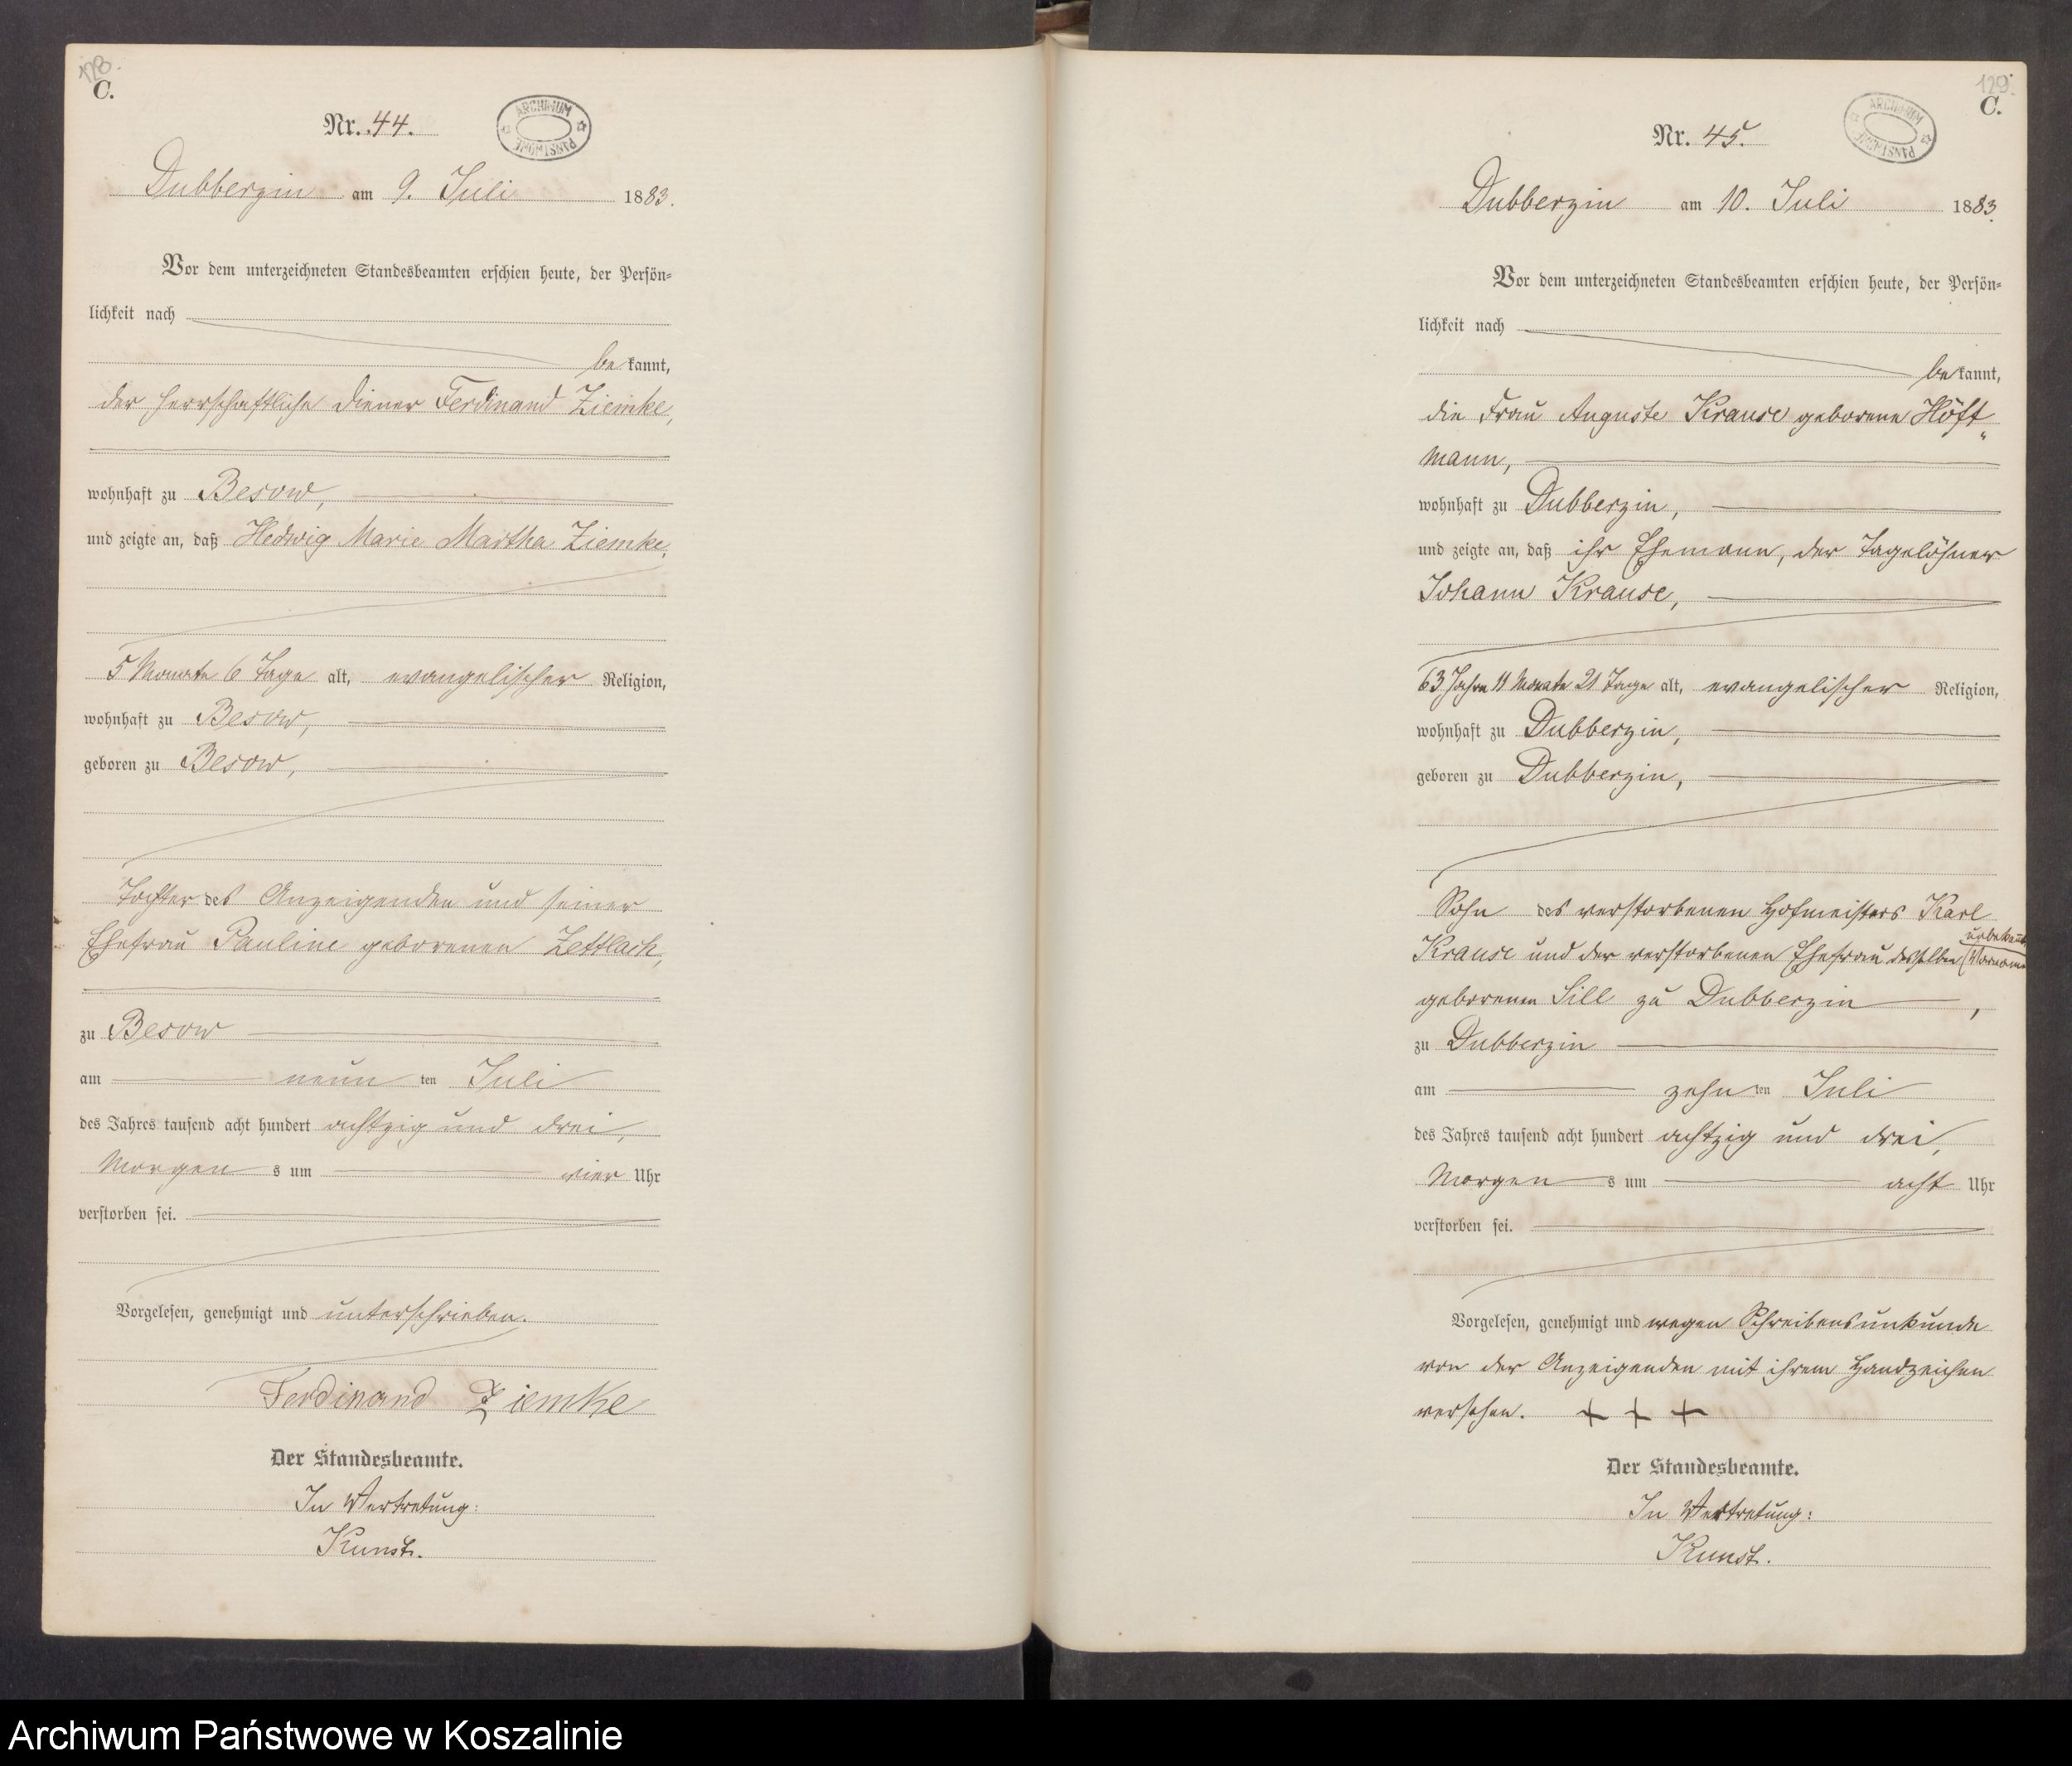 128.
C.
Nr. 44.
ARCHIWUM PAŃSTWOWE
Dubberzin am 9. Juli 1883.
Vor dem unterzeichneten Standesbeamten erschien heute, der Persön-
lichkeit nach
be kannt,
der herrschaftliche Diener Ferdinand Ziemke,
wohnhaft zu Besow,
und zeigte an, daß Hedwig Marie Martha Ziemke,
5 Monate 6 Tage alt, evangelischer Religion,
wohnhaft zu Besow,
geboren zu Besow,
Tochter des Anzeigenden und seiner
Ehefrau Pauline geborenen Zettlach,
zu Besow
am neun ten Juli
des Jahres tausend acht hundert achtzig und drei,
Morgen s um vier Uhr
verstorben sei.
Vorgelesen, genehmigt und unterschrieben.
Ferdinand Ziemke
Der Standesbeamte.
In Vertretung:
Kunst.
129.
C.
Nr. 45.
ARCHIWUM PAŃSTWOWE
Dubberzin am 10. Juli 1883.
Vor dem unterzeichneten Standesbeamten erschien heute, der Persön-
lichkeit nach
be kannt,
die Frau Auguste Krause geborene Höft„
mann,
wohnhaft zu Dubberzin,
und zeigte an, daß ihr Ehemann, der Tagelöhner
Johann Krause,
63 Jahre 11 Monate 21 Tage alt, evangelischer Religion,
wohnhaft zu Dubberzin,
geboren zu Dubberzin,
Sohn des verstorbenen Hofmeisters Karl
unbekannt
Krause und der verstorbenen Ehefrau desselben (Vorname
geborenen Sill zu Dubberzin,
zu Dubberzin
am zehn ten Juli
des Jahres tausend acht hundert achtzig und drei,
Morgen s um acht Uhr
verstorben sei.
Vorgelesen, genehmigt und wegen Schreibensunkunde
von der Anzeigenden mit ihrem Handzeichen
versehen. + + +
Der Standesbeamte.
In Vertretung:
Kunst.
Archiwum Państwowe w Koszalinie